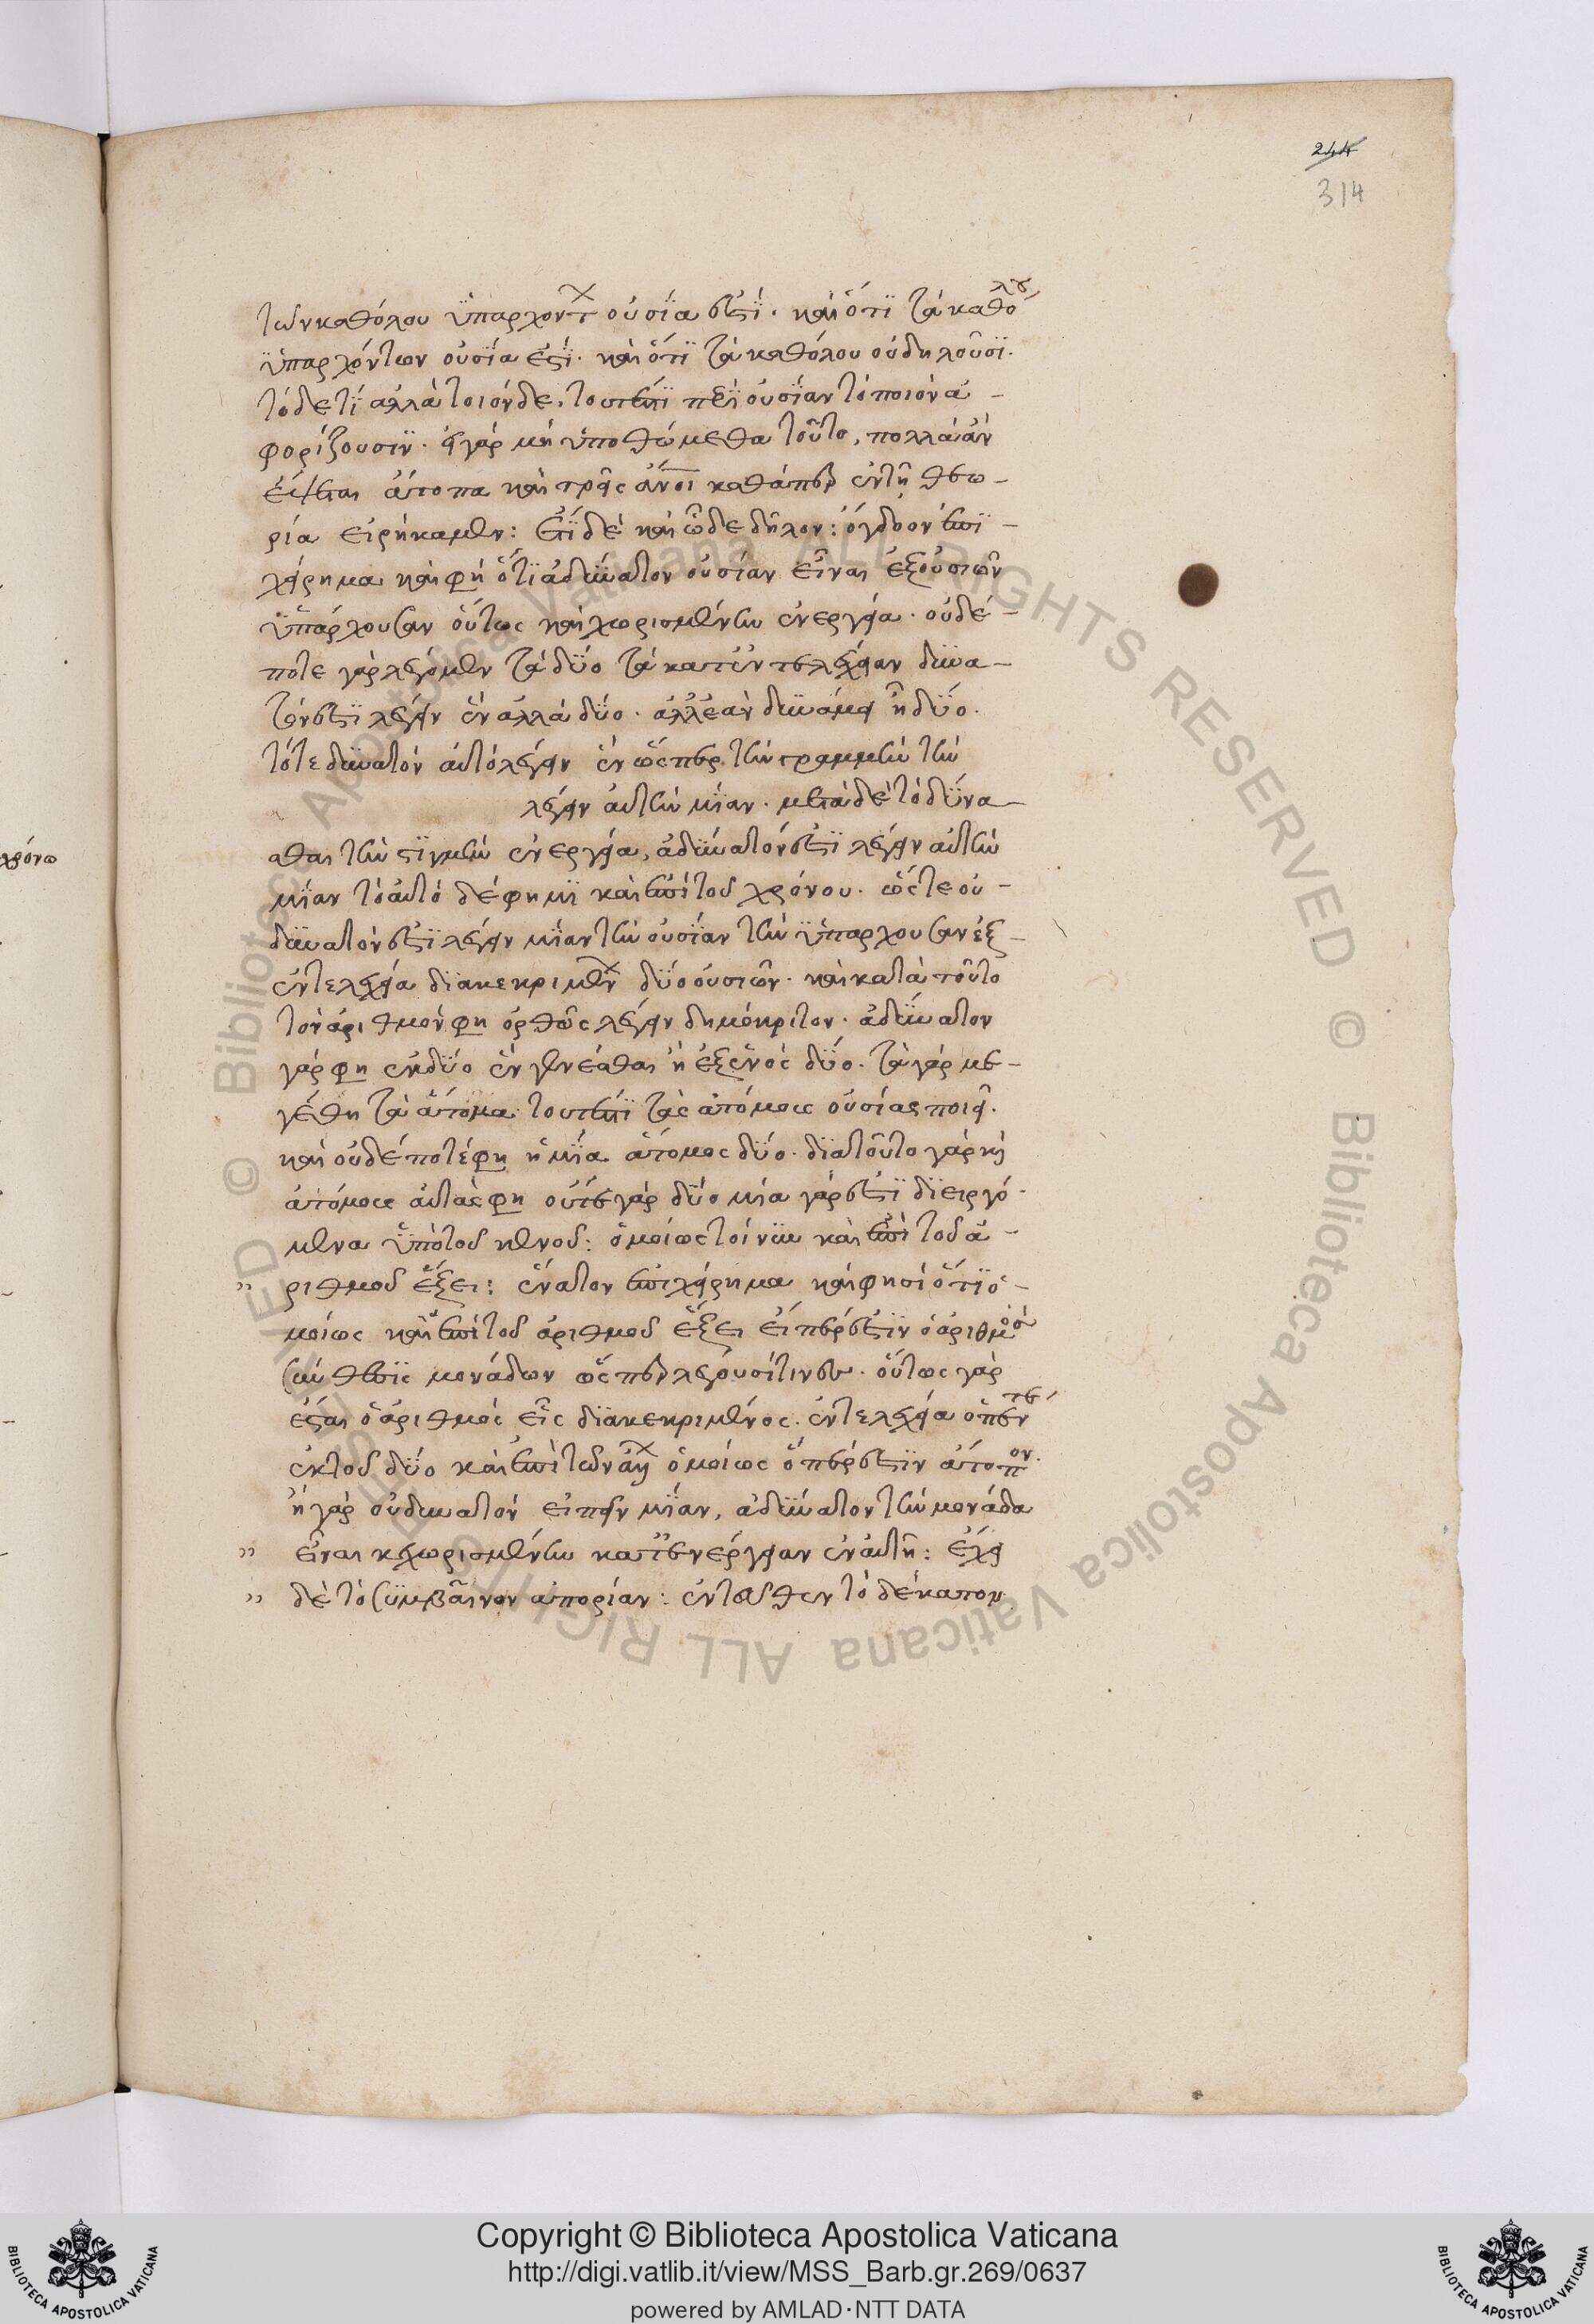 244
314
τῶν καθόλου ὑπαρχόντων οὐσία ἐστί. καὶ ὅτι τὰ καθόλου
ὑπαρχόντων οὐσία ἐστί. καὶ ὅτι τὰ καθόλου οὐ δηλοῦσι.
τόδε τί ἀλλὰ τοιόνδε, τουτέστι περὶ οὐσίαν τὸ ποιὸν ἀ-
φορίζουσιν. εἰ γὰρ μὴ ὑποθώμεθα τοῦτο, πολλὰ ἂν
ἕψεται ἄτοπα καὶ τρεῖς ἄνοι καθάπερ ἐν τῇ θεω-
ρία εἰρήκαμεν: ἔτι δὲ καὶ ὧδε δῆλον: ὄγδοον ἐπι-
χείρημα καὶ φη ὅτι ἀδύνατον οὐσίαν εἶναι ἐξ οὐσιῶν
ὑπάρχουσαν οὕτως καὶ χωρισμένην ἐνεργεία. οὐδέ-
ποτε γὰρ λέγομεν τὰ δύο τὰ κατ' ἐντελέχειαν δυνα-
τόν ἐστι λέγειν ἓν ἀλλὰ δύο. ἀλλ' ἐὰν δυνάμει ἦ δύο.
τότε δυνατὸν αὐτὸ λέγειν ἓν ὥσπερ τὴν γραμμὴν τὴν
λέγειν αὐτὴν μίαν. μετὰ δὲ τὸ δύνα-
σθαι τὴν στιγμὴν ἐνεργεία, ἀδύνατόν ἐστι λέγειν αὐτὴν
μίαν τὸ αὐτὸ δέ φημι καὶ ἐπὶ τοῦ χρόνου. ὥστε οὐ-
δυνατόν ἐστι λέγειν μίαν τὴν οὐσίαν τὴν ὑπάρχουσαν ἐξ-
ἐντελεχεία διακεκριμένων δύο οὐσιῶν. καὶ κατὰ τοῦτο
τὸν ἀριθμὸν φη ὀρθῶς λέγειν δημόκριτον. ἀδύνατον
γάρ φη ἐκ δύο ἓν γενέσθαι ἢ ἐξ ἑνὸς δύο. τὰ γὰρ με-
γέθη τὰ ἄτομα τουτέστι τὰς ἀτόμους οὐσίας ποιεῖ.
καὶ οὐδέποτέ φη ἡ μία ἄτομος δύο. διὰ τοῦτο γὰρ καὶ
ἀτόμους αὐτάς φη οὔτε γὰρ δύο μία γάρ ἐστι διειργό-
μενα ὑπὸ τοῦ κενοῦ: ὁμοίως τοίνυν καὶ ἐπὶ τοῦ ἀ-
" ριθμοῦ ἕξει: ἔνατον ἐπιχείρημα καὶ φησὶ ὅτι ὁ-
μοίως καὶ ἐπὶ τοῦ ἀριθμοῦ ἕξει εἴπερ ἐστὶν ὁ ἀριθμὸς
σύνθεσις μονάδων ὥσπερ λέγουσί τινες. οὕτως γὰρ
ἔσται ὁ ἀριθμὸς εἷς διακεκριμένος. ἐντελεχεία
ἐκ τοῦ δύο καὶ ἐπὶ τῶν ὁμοίως ὅπερ ἐστὶν ἄτοπον.
ἢ γὰρ οὐ δυνατὸν εἰπεῖν μίαν, ἀδύνατον τὴν μονάδα
" εἶναι κεχωρισμένην κατ' ἐνέργειαν ἐν αὐτῇ: ἔχει
" δὲ τὸ συμβαῖνον ἀπορίαν: ἐντεῦθεν τὸ δέκατον
χρόνω
Copyright © Biblioteca Apostolica Vaticana
http://digi.vatlib.it/view/MSS_Barb.gr.269/0637
powered by AMLAD·NTT DATA